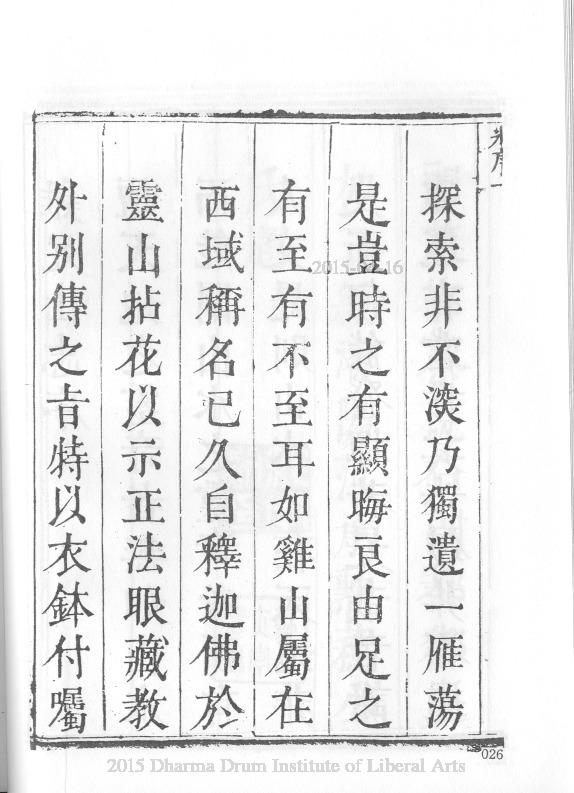 探索非不深乃獨遺一雁蕩
是豈時之有顯晦良由足之
有至有不至耳如雞山屬在
西域稱名已久自釋迦佛於
靈山拈花以示正法眼藏教
外別傳之旨特以衣鉢付囑
026
2015 Dharma Drum Institute of Liberal Arts